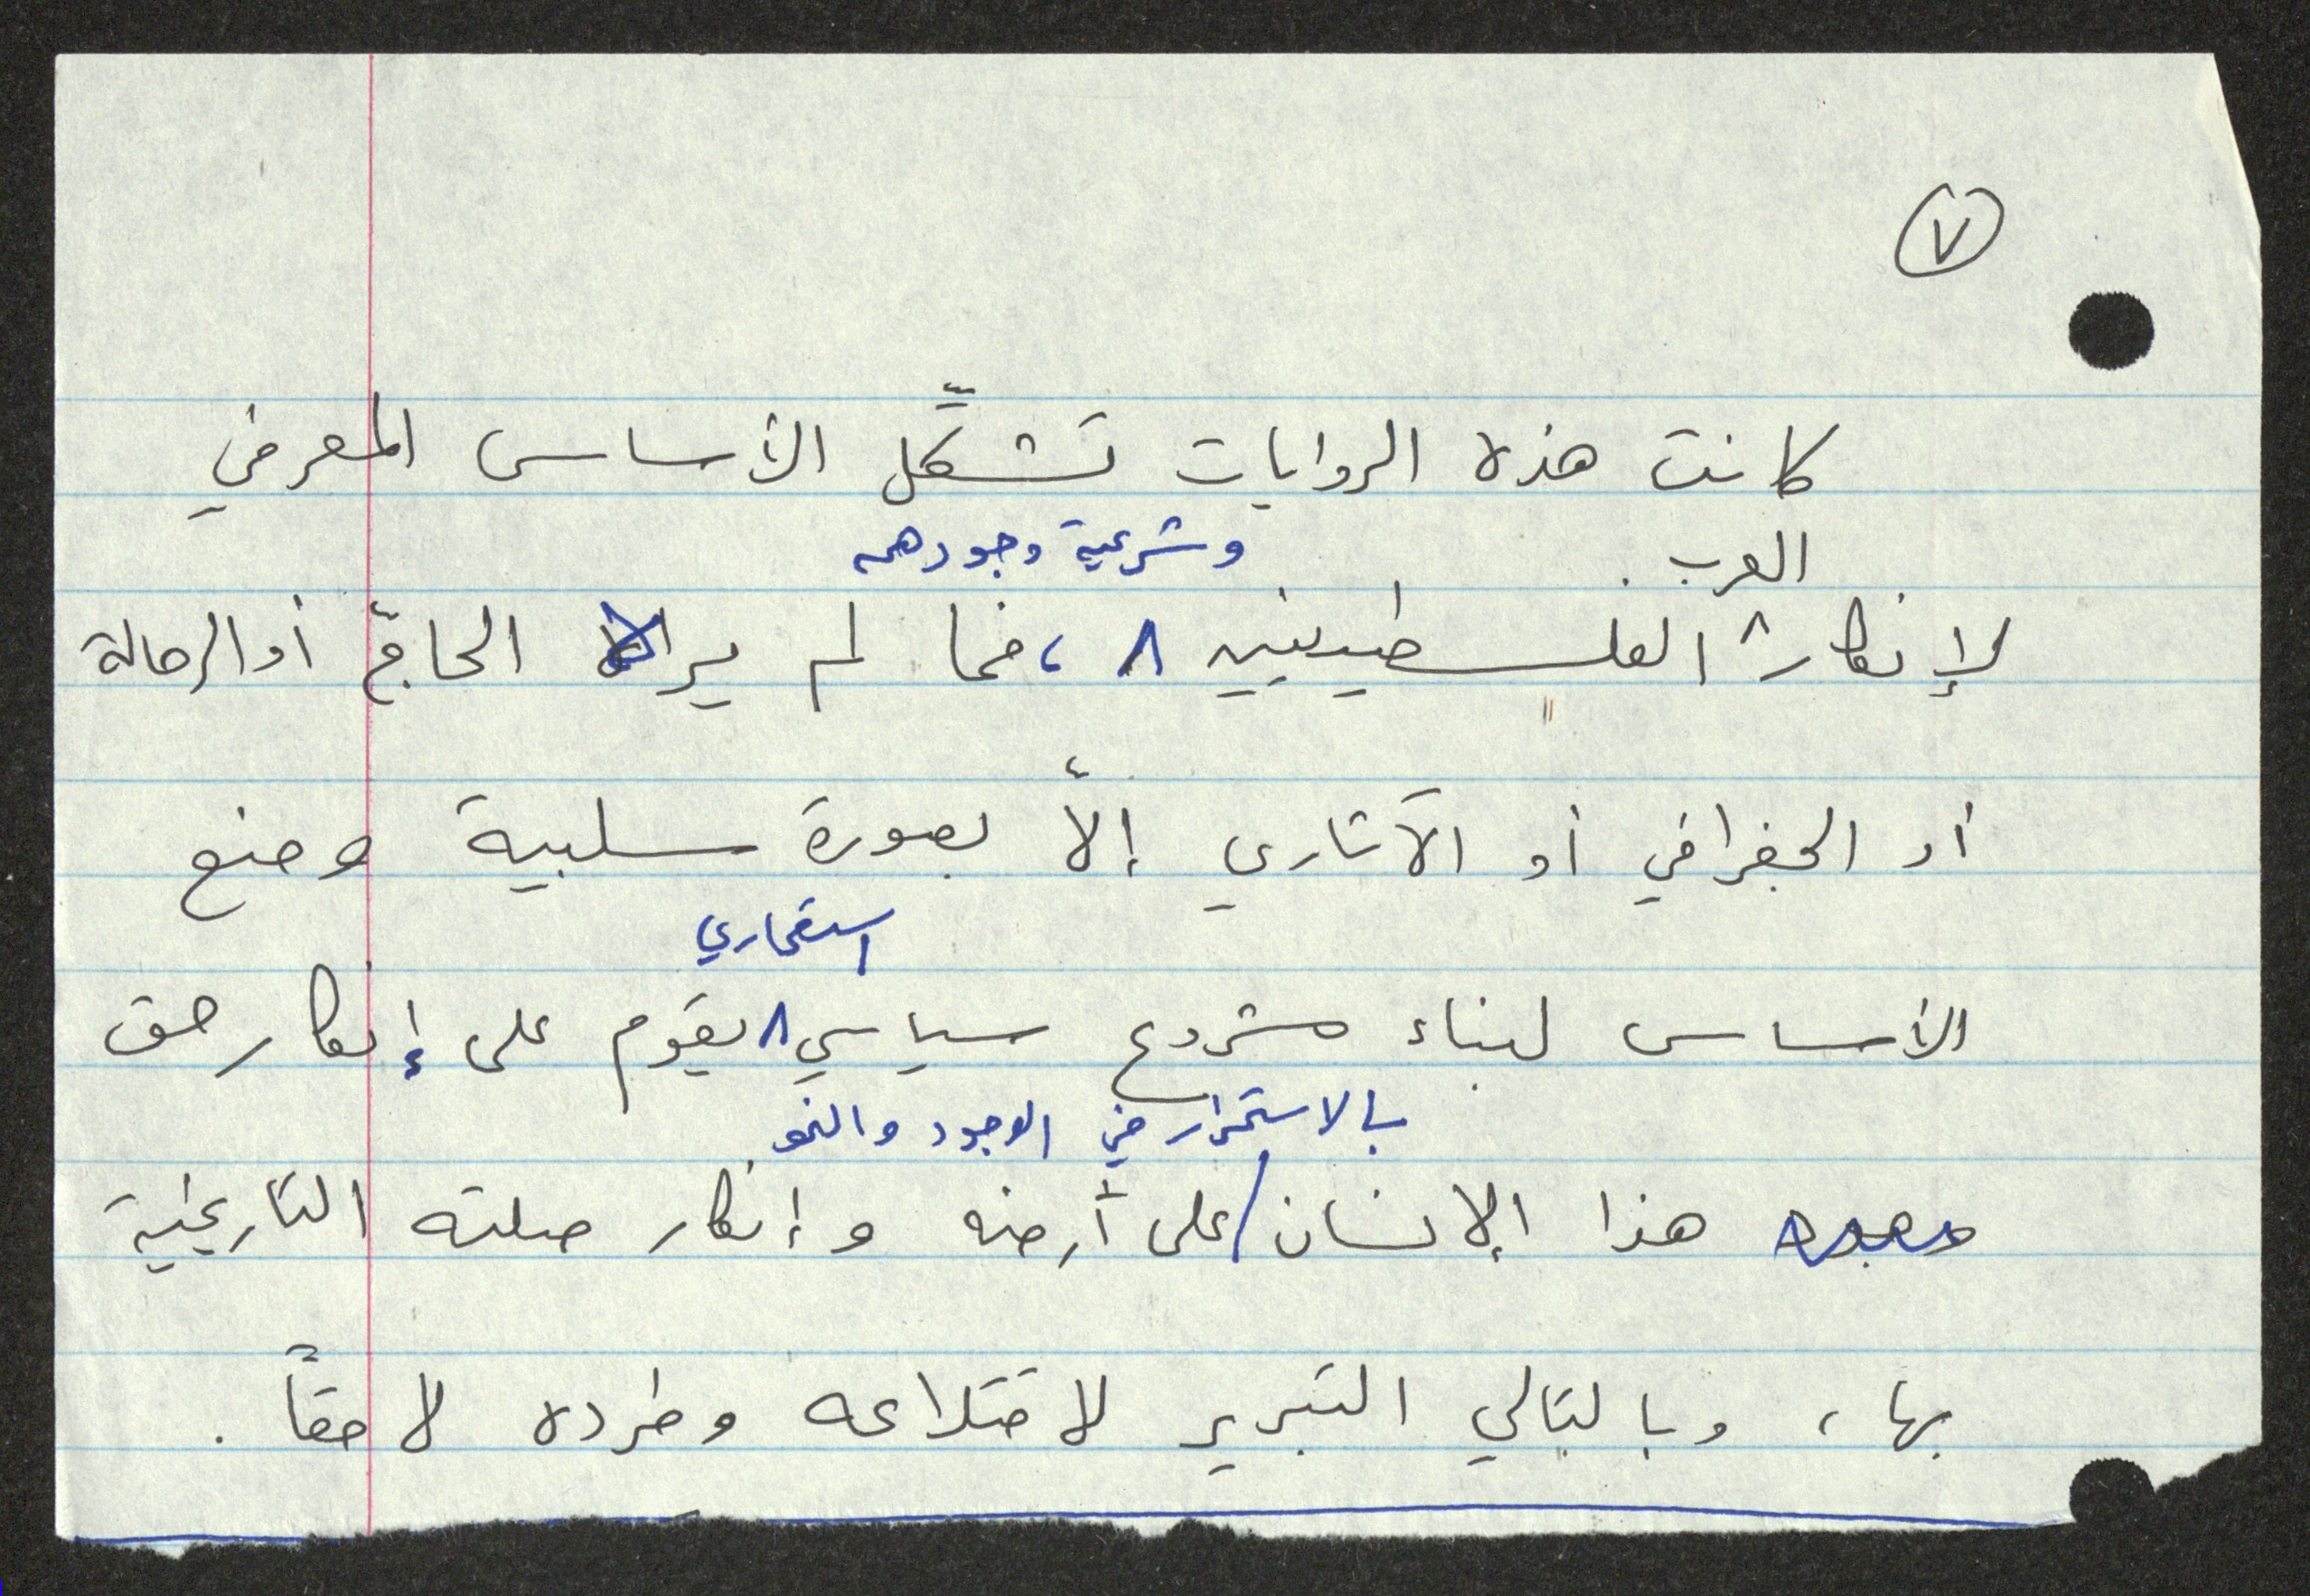 ٧
كانت هذه الروايات تشكِّل الأساس المعرفي
العرب وشرعية وجودهم
لإنكار الفلسطينيين ، فما لم يراه الحاجّ أو الرحالة
أو الجغرافي أو الآثاري إلاّ بصورة سلبية وضع
استعماري
الأساس لبناء مشروع سياسي يقوم على إنكار حق
بالاستمرار في الوجود والنمو
هذا الإنسان على أرضه وإنكار صلته التاريخية
بها، وبالتالي التبرير لاقتلاعه وطرده لاحقاً.